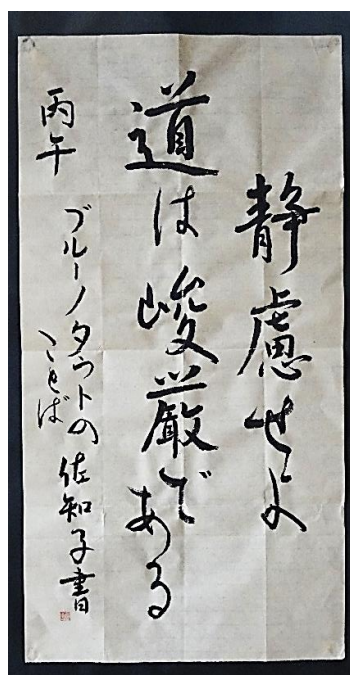 静慮せよ
道は峻厳である
丙午
ブルーノタウトの
ことば
佐知子書